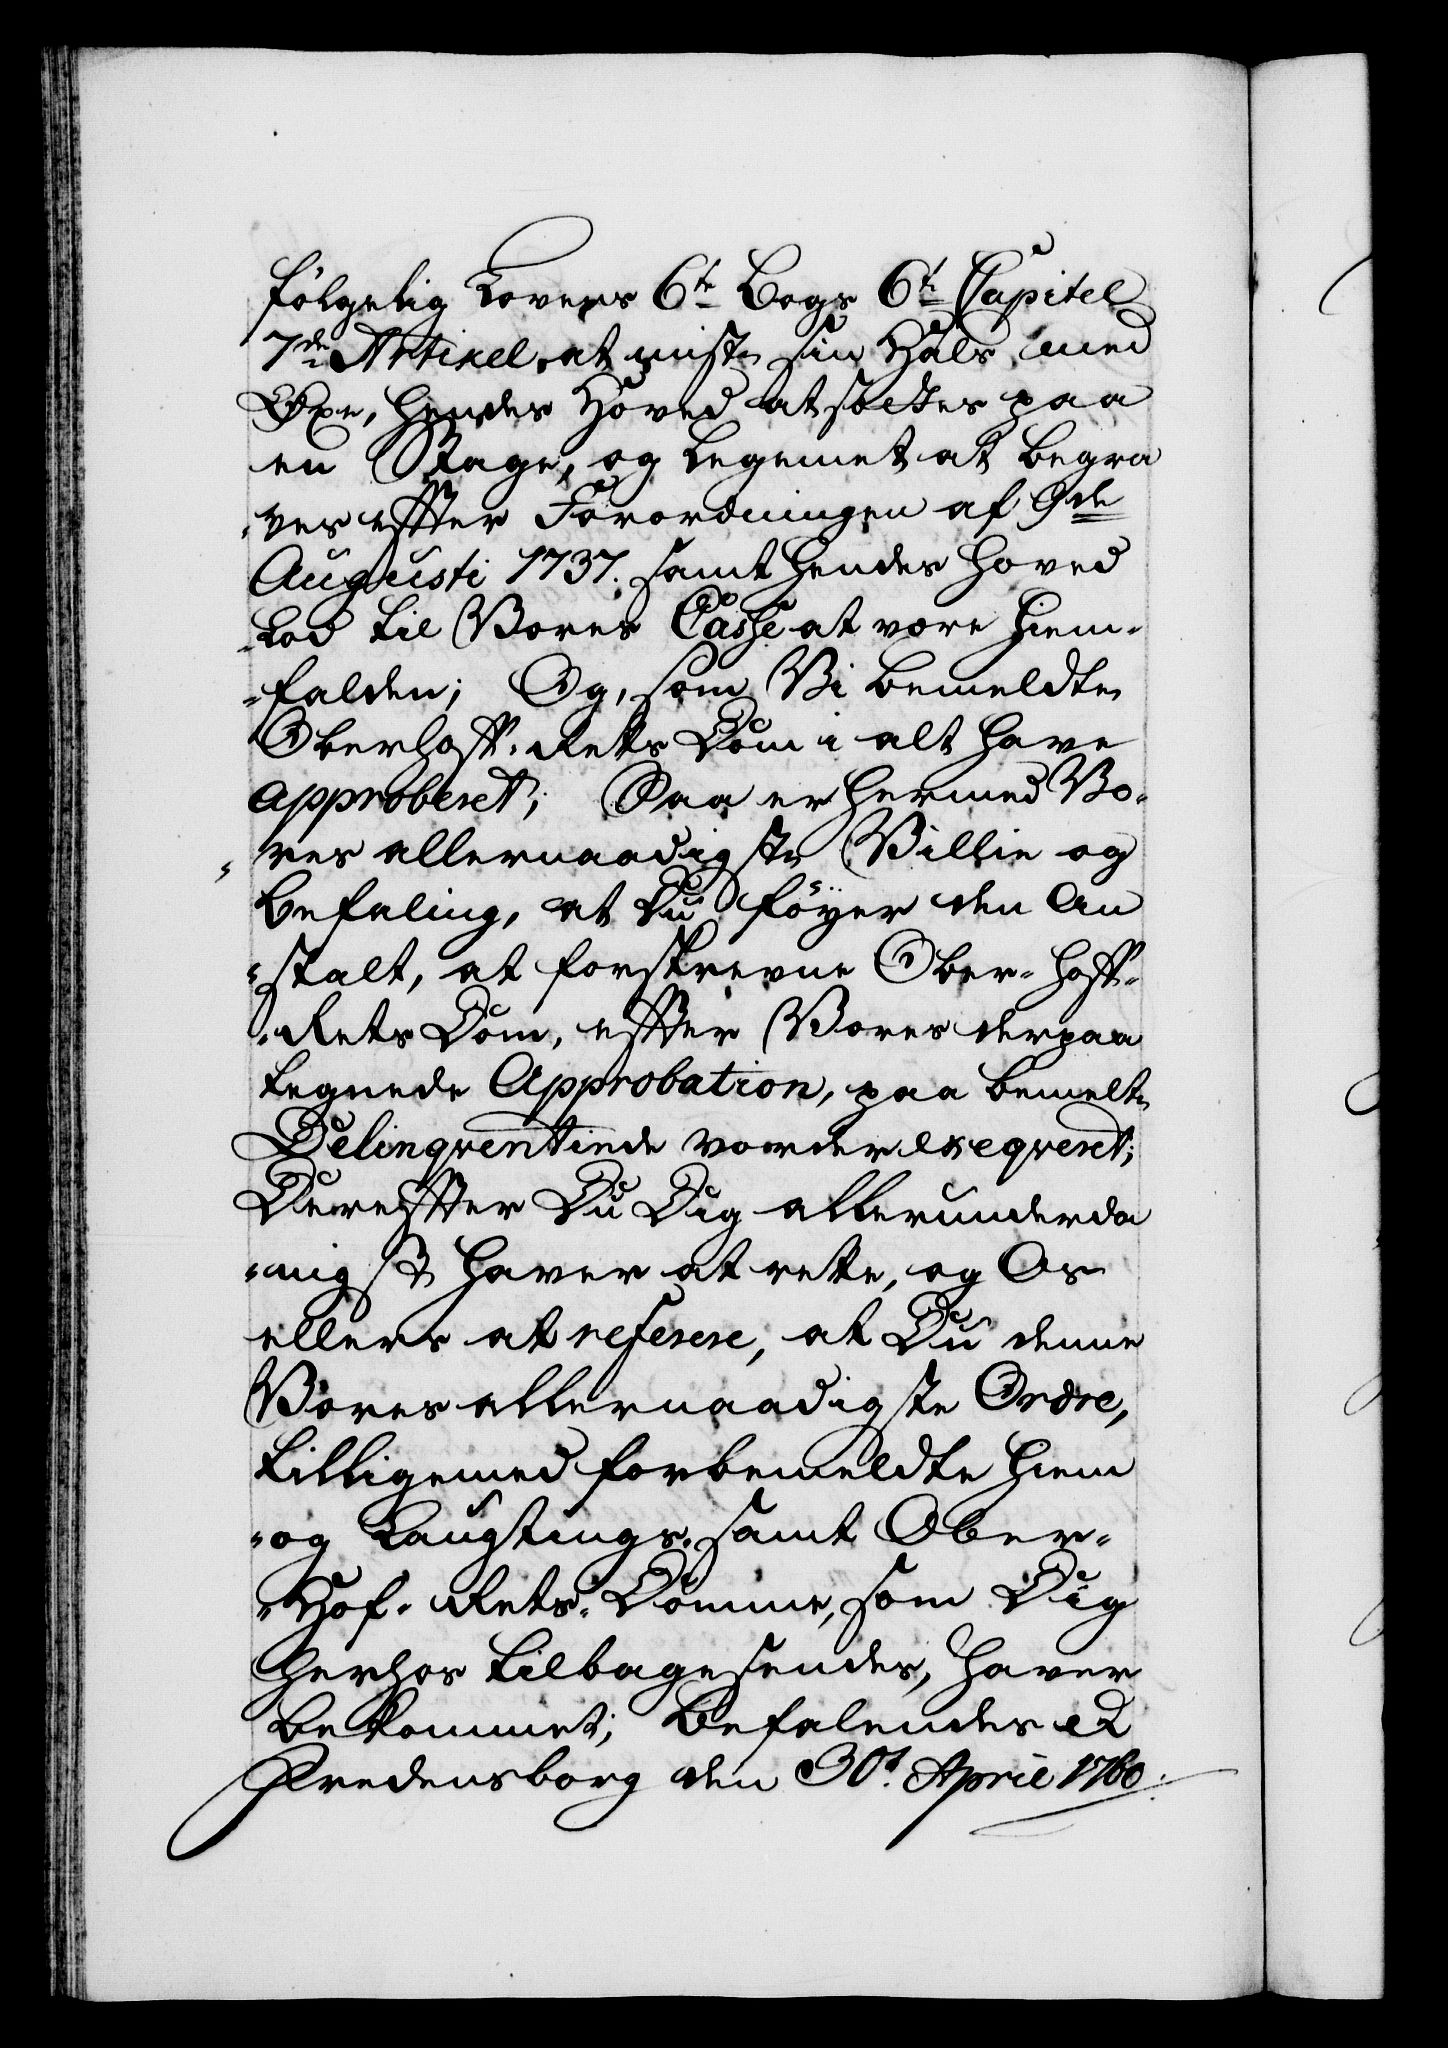 følgelig Lovens 6te Bogs 6te Capitel
7de Artikel, at miste sin Hals med
Øxe, hendes Hoved at sættes paa
en Stage, og Legemet at begra
-ves effter Forordningen af 9de
Augusti 1737. samt hendes Hoved
-Lod til Vores Casse at være hiem-
-falden; Og, som Vi bemeldte
Oberhoff-Retts Dom i alt have
approberet; Saa er hermed Vo-
-res allernaadigste Villie og
Befaling, at Du föÿer den An
-stalt, at forskrevne Ober-Hoff-
-Rets Dom, effter Vores derpaa
tegnede Approbation, paa bemelte
Delinqventinde vorder exeqveret;
Dereffter Du Dig allerunderda
-nigst haver at rette, og Os
ellers at referere, at Du denne
Vores allernaadigste Ordre,
tilligemed forbemeldte Hiem
-og Laugtings-samt Ober-
-Hof-Rets-Domme, som Dig
herhos tilbagesendes, haver
bekommet; Befalendes etc
Fredensborg den 30t April 1760.